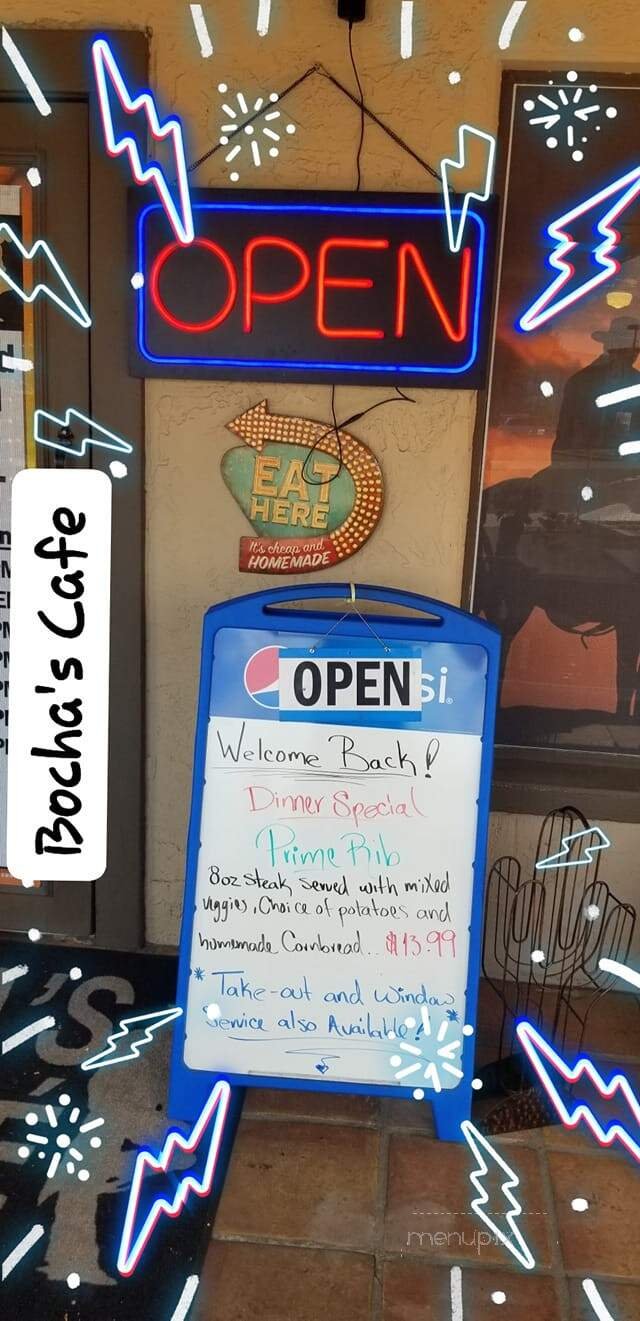 OPEN
EAT
HERE
It's cheap and
HOMEMADE
Bocha's Cafe
OPEN
si
Welcome Back!
Dinner Special
Prime Rib
8oz steak served with mixed
veggies, Choice of potatoes and
homemade Cornbread.. $13.99
* Take-out and window
Service also Available! *
'S
menupix